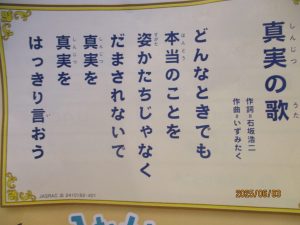 真実の歌
しんじつ うた
作詞=石坂浩二
作曲=いずみたく
どんなときでも
本当のことを
ほんとう
姿かたちじゃなく
すがた
だまされないで
真実を
しんじつ
真実を
しんじつ
はっきり言おう
い
JASRAC
2025/06/03